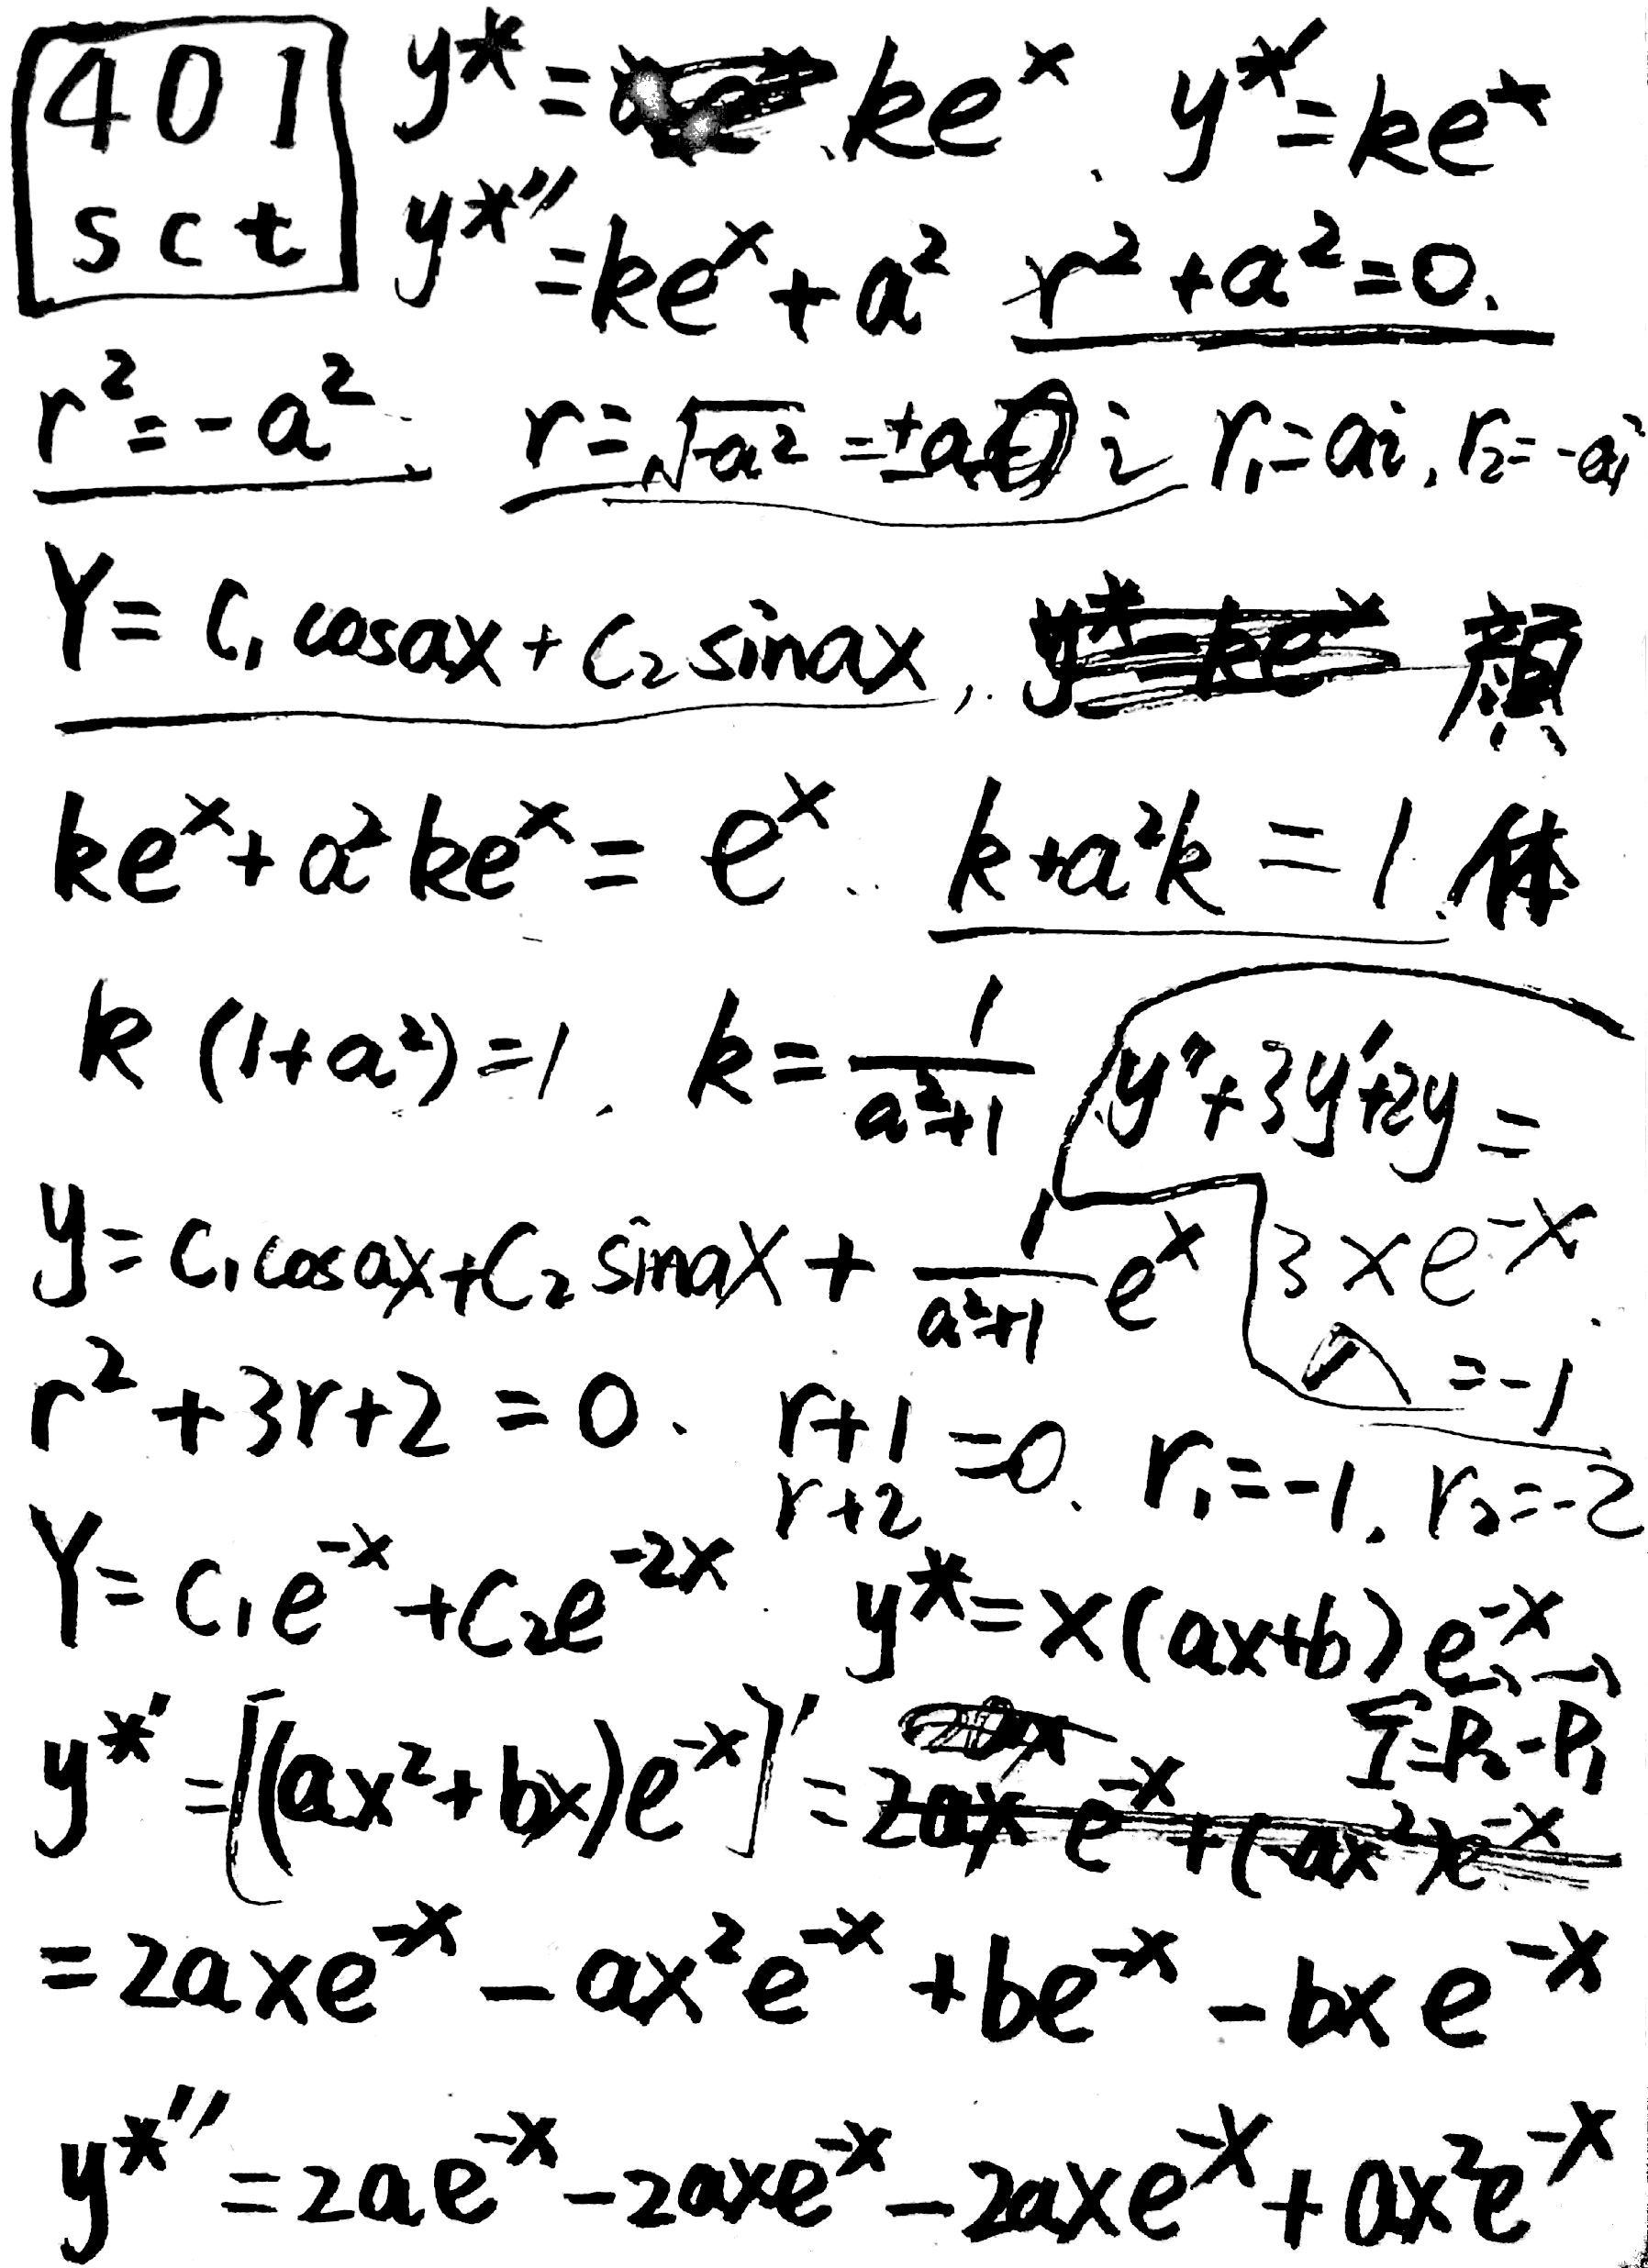 401 y* = ke^x. y*' = ke^x
sct y*'' = ke^x + a² r² + a² = 0.
r² = -a². r = √-a² = ±a i r₁ = ai, r₂ = -ai
Y = C₁ cosax + C₂ sinax, 顔
ke^x + a² ke^x = e^x. k + a²k = 1. 体
k (1+a²) = 1, k = 1/(a²+1) y'' + 3y' + 2y =
y = C₁ cosax + C₂ sinax + 1/(a²+1) e^x 3xe^-x.
λ = -1
r² + 3r + 2 = 0. r+1 r+2 = 0. r₁ = -1, r₂ = -2
Y = C₁e^-x + C₂e^-2x. y* = x(ax+b)e^-x
y*' = [(ax²+bx)e^-x]' = 2axe^-x + (-ax²)e^-x
= 2axe^-x - ax²e^-x + be^-x - bxe^-x
y*'' = 2ae^-x - 2axe^-x - 2axe^-x + ax²e^-x